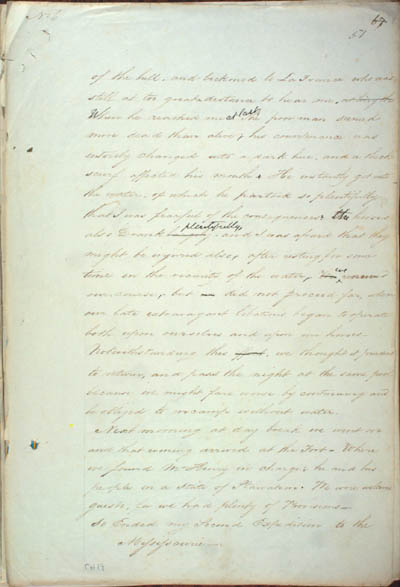 No 6
67
51
of the hill - and beckoned to La France who was
still at too great distance to hear me,
When he reached me at last, the poor man seemed
more dead than alive; his countenance was
entirely changed into a dark hue, and a thick
scurf affected his mouth. He instantly got into
the water, of which he partook so plentifully
that I was fearful of the consequences, the horses
also drank plentifully, and I was afraid that they
might be injured also, after resting for some
time in the vicinity of the water, we
our course, but did not proceed far, when
our late extravagant libations began to operate
both upon ourselves and upon our horses.
Notwithstanding this we thought it prudent
to return, and pass the night at the same pool
because we might fare worse by continuing and
be obliged to encamp without water.
Next morning at day break we went on
and that evening arrived at the Fort - Where
we found Mr Henry in charge; he and his
people in a state of Starvation. We were welcome
guests, for we had plenty of Provisions -
So Ended my Second Expedition to the
Missisourie -